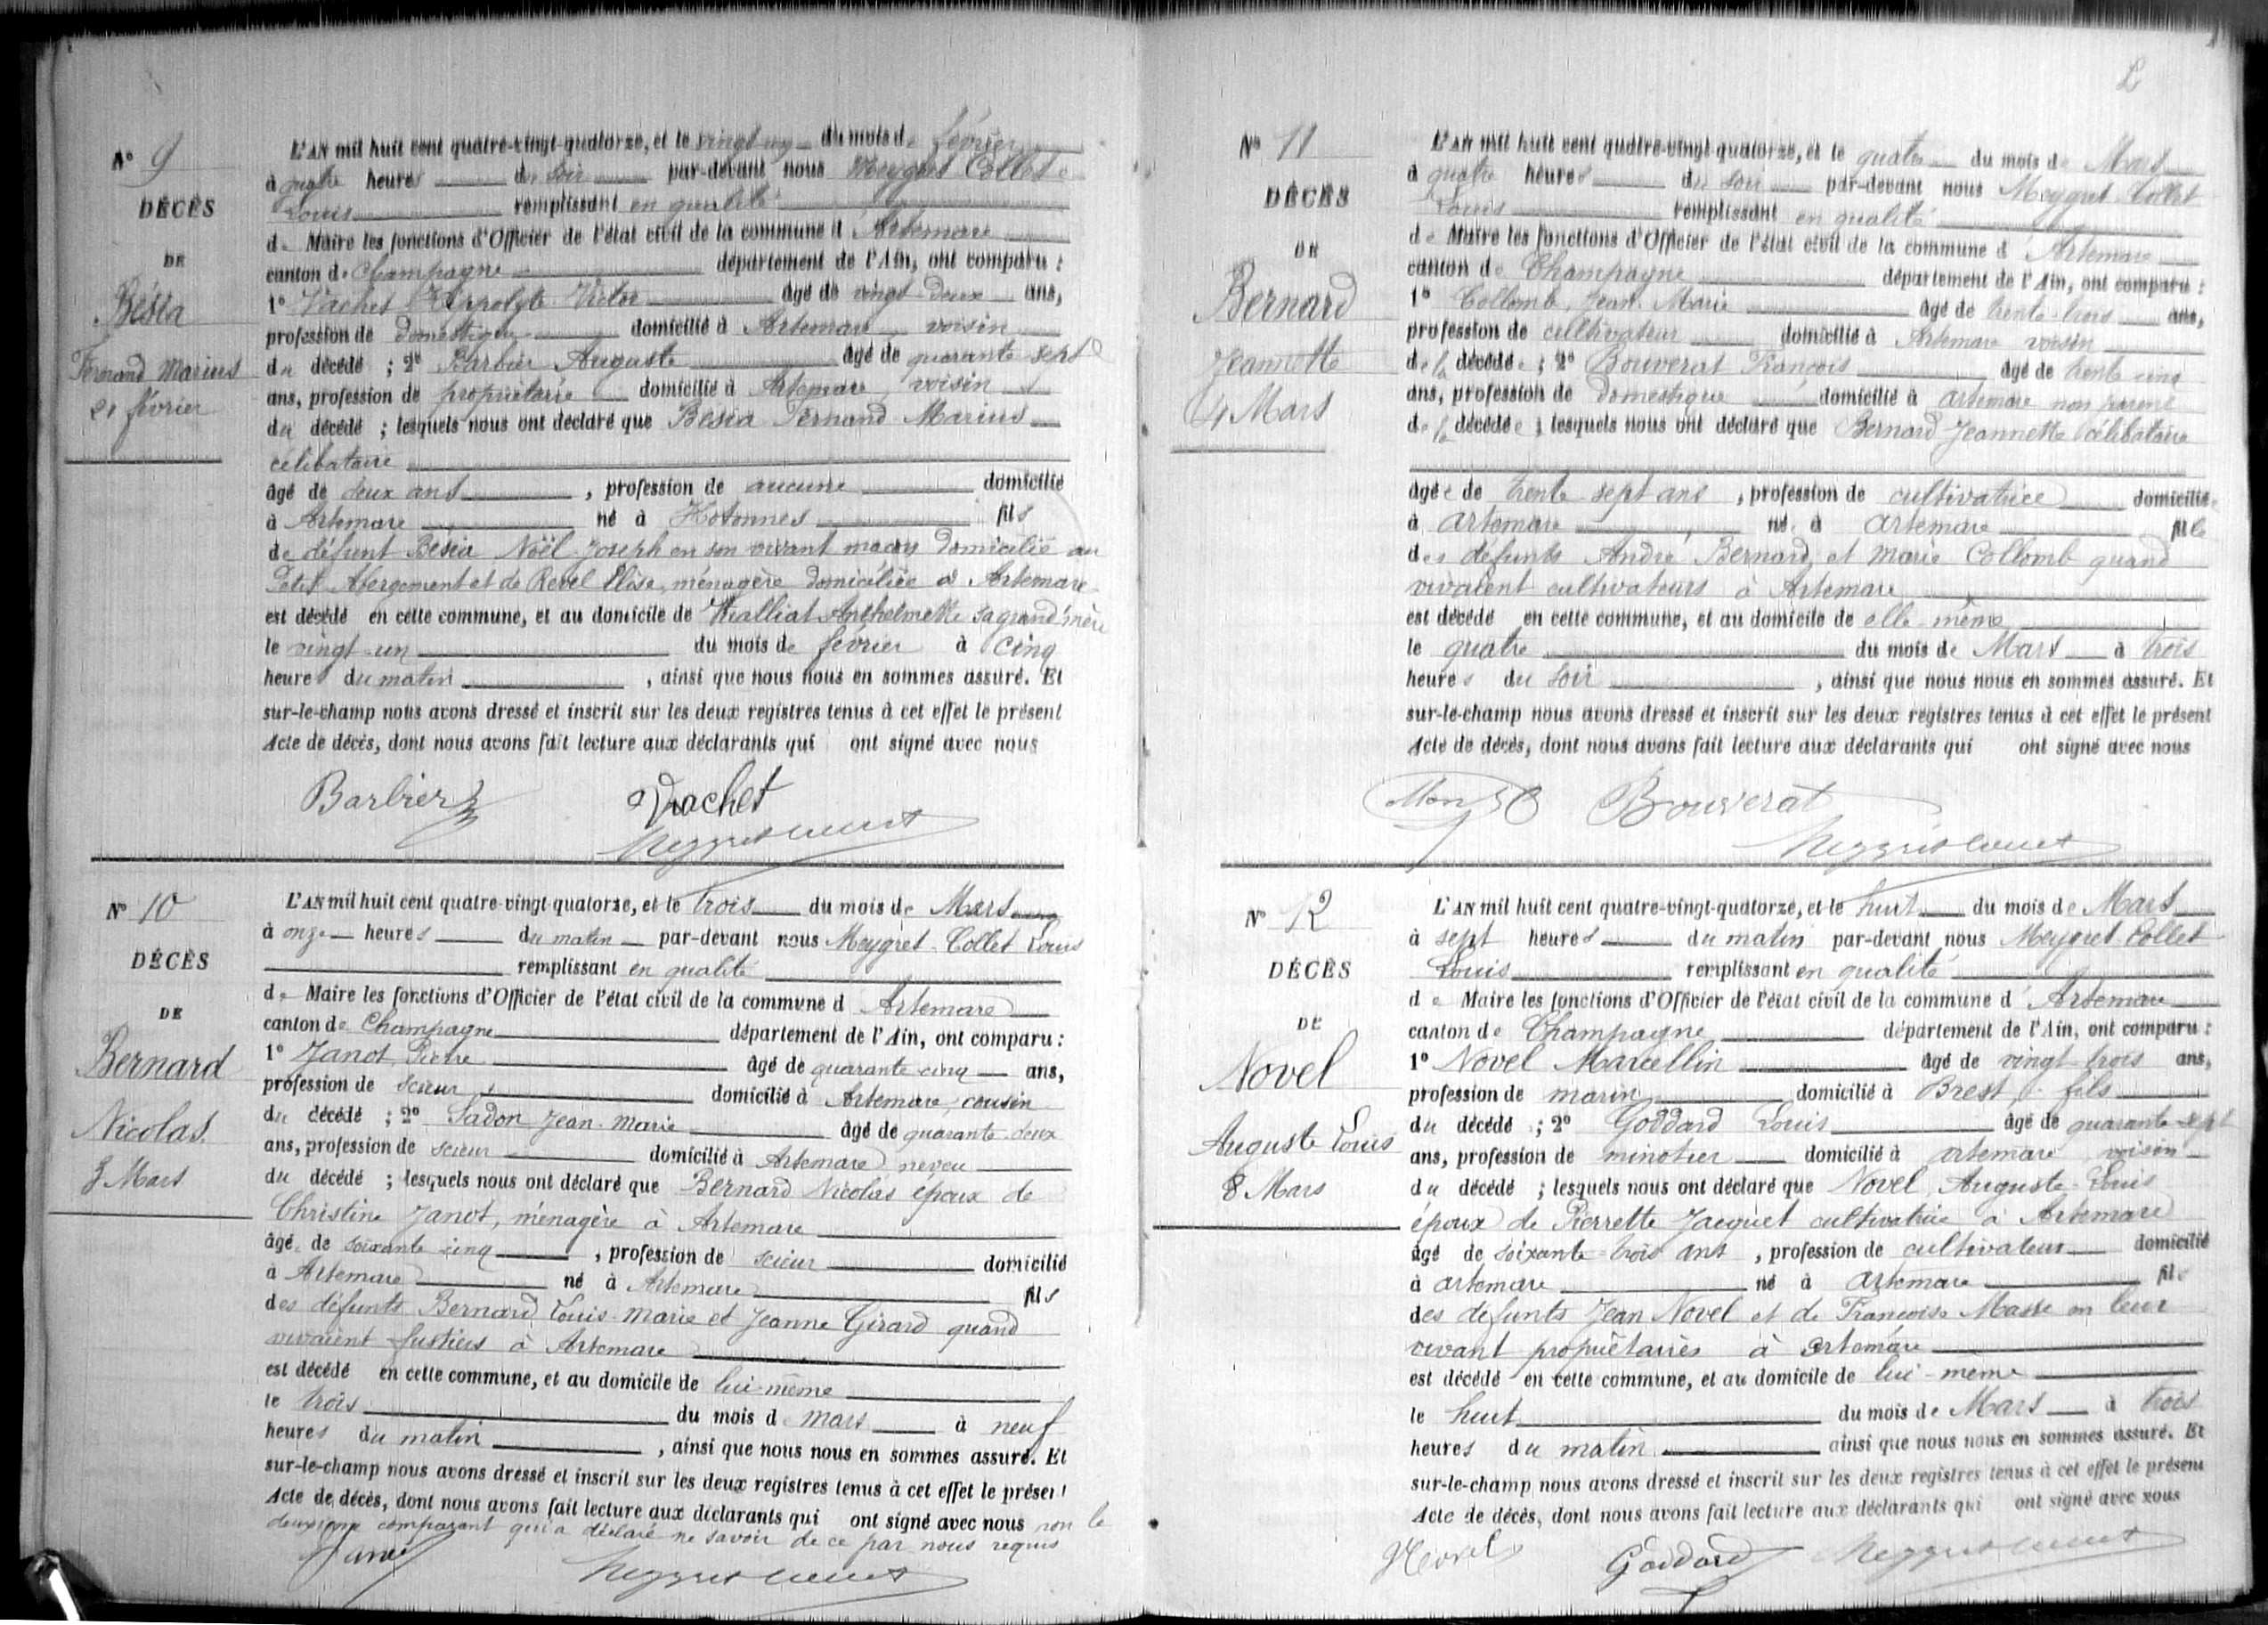 N° 9
DÉCÈS
DE
Bésia
Fernand Marius
21 février
L'AN mil huit cent quatre-vingt-quatorze, et le vingt un du mois de février
à quatre heures du soir par-devant nous Meygret Collet
Louis remplissant en qualité
de Maire les fonctions d'Officier de l'état civil de la commune d'Artemare
canton de Champagne département de l'Ain, ont comparu :
1° Vachet Hippolyte Victor âgé de vingt-deux ans,
profession de domestique domicilié à Artemare voisin
du décédé ; 2° Barbier Auguste âgé de quarante-sept
ans, profession de propriétaire domicilié à Artemare voisin
du décédé ; lesquels nous ont déclaré que Bésia Fernand Marius
célibataire
âgé de deux ans, profession de aucune domicilié
à Artemare né à Hotonnes fils
de défunt Bésia Noël Joseph en son vivant maçon domicilié au
Petit Abergement et de Revel Elise, ménagère domiciliée à Artemare
est décédé en cette commune, et au domicile de Vialliat Anthelmette sa grand'mère
le vingt-un du mois de février à cinq
heures du matin, ainsi que nous nous en sommes assuré. Et
sur-le-champ nous avons dressé et inscrit sur les deux registres tenus à cet effet le présent
Acte de décès, dont nous avons fait lecture aux déclarants qui ont signé avec nous
Barbier Vachet
Meygret Collet
N° 10
DÉCÈS
DE
Bernard
Nicolas
3 Mars
L'AN mil huit cent quatre-vingt-quatorze, et le trois du mois de Mars
à onze heures du matin par-devant nous Meygret-Collet Louis
remplissant en qualité
de Maire les fonctions d'Officier de l'état civil de la commune d Artemare
canton de Champagne département de l'Ain, ont comparu :
1° Janot Pierre âgé de quarante-cinq ans,
profession de scieur domicilié à Artemare, cousin
du décédé ; 2° Sadon Jean-Marie âgé de quarante-deux
ans, profession de scieur domicilié à Artemare neveu
du décédé ; lesquels nous ont déclaré que Bernard Nicolas époux de
Christine Janot, ménagère à Artemare
âgé de soixante cinq, profession de scieur domicilié
à Artemare né à Artemare fils
des défunts Bernard Louis-Marie et Jeanne Girard quand
vivaient fustiers à Artemare
est décédé en cette commune, et au domicile de lui-même
le trois du mois de mars à neuf
heures du matin, ainsi que nous nous en sommes assuré. Et
sur-le-champ nous avons dressé et inscrit sur les deux registres tenus à cet effet le présent
Acte de décès, dont nous avons fait lecture aux déclarants qui ont signé avec nous non le
deuxième comparant qui a déclaré ne savoir de ce par nous requis
Janot Meygret Collet
N° 11
DÉCÈS
DE
Bernard
Jeannette
4 Mars
L'AN mil huit cent quatre-vingt-quatorze, et le quatre du mois de Mars
à quatre heures du soir par-devant nous Meygret-Collet
Louis remplissant en qualité
de Maire les fonctions d'Officier de l'état civil de la commune d'Artemare
canton de Champagne département de l'Ain, ont comparu :
1° Collomb, Jean-Marie âgé de trente-trois ans,
profession de cultivateur domicilié à Artemare voisin
de la décédée ; 2° Bouverat François âgé de trente cinq
ans, profession de domestique domicilié à artemare non parent
de la décédée ; lesquels nous ont déclaré que Bernard Jeannette célibataire
âgée de trente-sept ans, profession de cultivatrice domiciliée
à artemare née à artemare fille
des défunts André Bernard et Marie Collomb quand
vivaient cultivateurs à Artemare
est décédé en cette commune, et au domicile de elle-même
le quatre du mois de Mars à trois
heures du soir, ainsi que nous nous en sommes assuré. Et
sur-le-champ nous avons dressé et inscrit sur les deux registres tenus à cet effet le présent
Acte de décès, dont nous avons fait lecture aux déclarants qui ont signé avec nous
Bouverat
Meygret Collet
N° 12
DÉCÈS
DE
Novel
Auguste Louis
8 Mars
L'AN mil huit cent quatre-vingt-quatorze, et le huit du mois de Mars
à sept heures du matin par-devant nous Meygret Collet
Louis remplissant en qualité
de Maire les fonctions d'Officier de l'état civil de la commune d'Artemare
canton de Champagne département de l'Ain, ont comparu :
1° Novel Marcellin âgé de vingt-trois ans,
profession de marin domicilié à Brest, fils
du décédé ; 2° Goddard Louis âgé de quarante-sept
ans, profession de minotier domicilié à artemare voisin
du décédé ; lesquels nous ont déclaré que Novel Auguste-Louis
époux de Pierrette Jacquet cultivatrice à Artemare
âgé de soixante-trois ans, profession de cultivateur domicilié
à artemare né à artemare fils
des défunts Jean Novel et de Françoise Masse en leur
vivant propriétaires à artemare
est décédé en cette commune, et au domicile de lui-même
le huit du mois de Mars à trois
heures du matin ainsi que nous nous en sommes assuré. Et
sur-le-champ nous avons dressé et inscrit sur les deux registres tenus à cet effet le présent
Acte de décès, dont nous avons fait lecture aux déclarants qui ont signé avec nous
Novel Goddard Meygret Collet